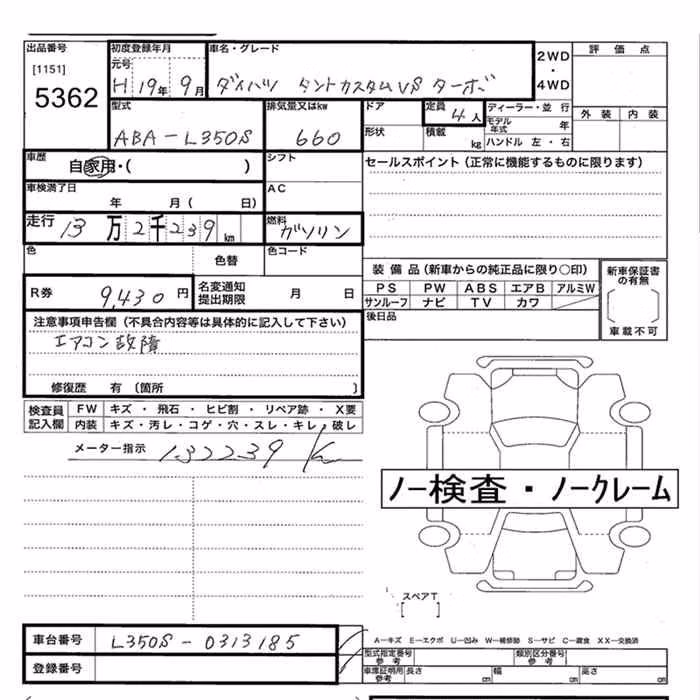 出品番号 初度登録年月 車名・グレード 2WD・4WD 評価点
[1151] 元号
5362 H 19年 9月 ダイハツ タントカスタムVS ターボ
型式 排気量又はkw ドア 定員 4人 ディーラー・並行 外装 内装
ABA-L350S 660 形状 積載 kg モデル年式 年
ハンドル 左・右
車歴 自家用・( ) シフト セールスポイント(正常に機能するものに限ります)
車検満了日 年 月( 日) AC
走行 13万2千239km 燃料 ガソリン
色 色替 色コード
装備品(新車からの純正品に限り○印) 新車保証書の有無
R券 9,430円 名変通知提出期限 月 日 PS PW ABS エアB アルミW
サンルーフ ナビ TV カワ 車載不可
注意事項申告欄(不具合内容等は具体的に記入して下さい) 後日品
エアコン故障
修復歴 有(箇所 )
検査員記入欄 FW キズ・飛石・ヒビ割・リペア跡・X要
内装 キズ・汚レ・コゲ・穴・スレ・キレ・破レ
メーター指示 132239 K
ノー検査・ノークレーム
スペアT
[ ]
車台番号 L350S-0313185 A-キズ E-エクボ U-凹み W-補修跡 S-サビ C-腐食 XX-交換済
型式指定番号 参考 類別区分番号 参考
登録番号 車庫証明用 参考 長さ cm 幅 cm 高さ cm